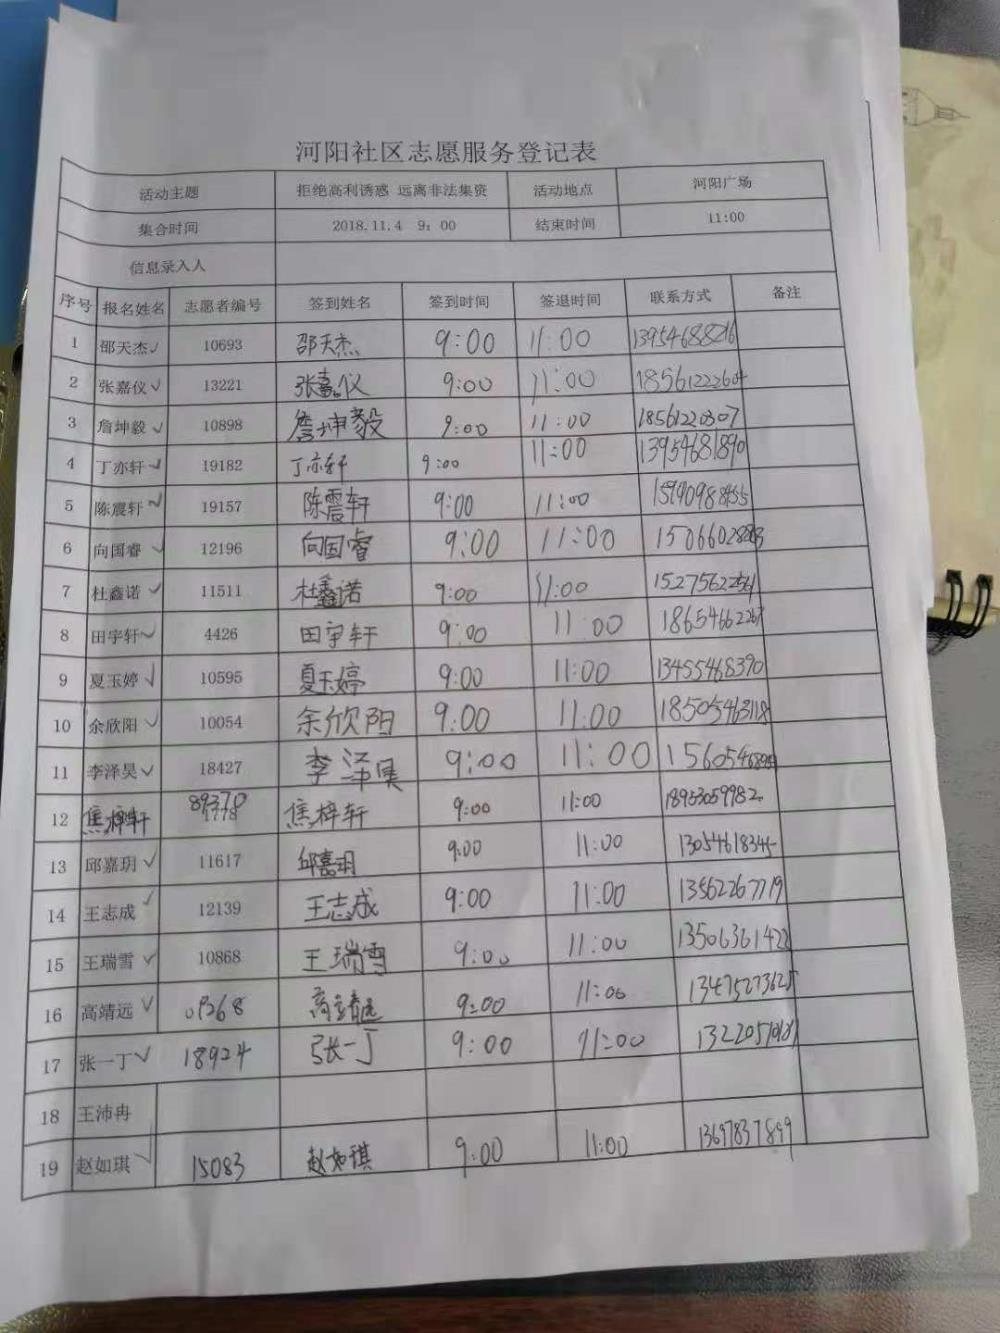 河阳社区志愿服务登记表
活动主题 拒绝高利诱惑 远离非法集资 活动地点 河阳广场
集合时间 2018.11.4 9:00 结束时间 11:00
信息录入人
序号 报名姓名 志愿者编号 签到姓名 签到时间 签退时间 联系方式 备注
1 邵天杰✓ 10693 邵天杰 9:00 11:00 13954688216
2 张嘉仪✓ 13221 张嘉仪 9:00 11:00 18561222604
3 詹坤毅✓ 10898 詹坤毅 9:00 11:00 18561220307
4 丁亦轩✓ 19182 丁亦轩 9:00 11:00 13954681890
5 陈震轩✓ 19157 陈震轩 9:00 11:00
6 向国睿✓ 12196 向国睿 9:00 11:00
7 杜鑫诺✓ 11511 杜鑫诺 9:00 11:00
8 田宇轩✓ 4426 田宇轩 9:00 11:00
9 夏玉婷✓ 10595 夏玉婷 9:00 11:00 13455468390
10 余欣阳✓ 10054 余欣阳 9:00 11:00 18505463118
11 李泽昊✓ 18427 李泽昊 9:00 11:00
12 焦梓轩 89378 焦梓轩 9:00 11:00 18953059982
13 邱嘉玥✓ 11617 邱嘉玥 9:00 11:00 13054618345
14 王志成✓ 12139 王志成 9:00 11:00 13562267719
15 王瑞雪✓ 10868 王瑞雪 9:00 11:00 13506361422
16 高靖远✓ 高靖远 9:00 11:00 13475273625
17 张一丁✓ 18924 张一丁 9:00 11:00
18 王沛冉
19 赵如琪✓ 15083 赵如琪 9:00 11:00 13697837899